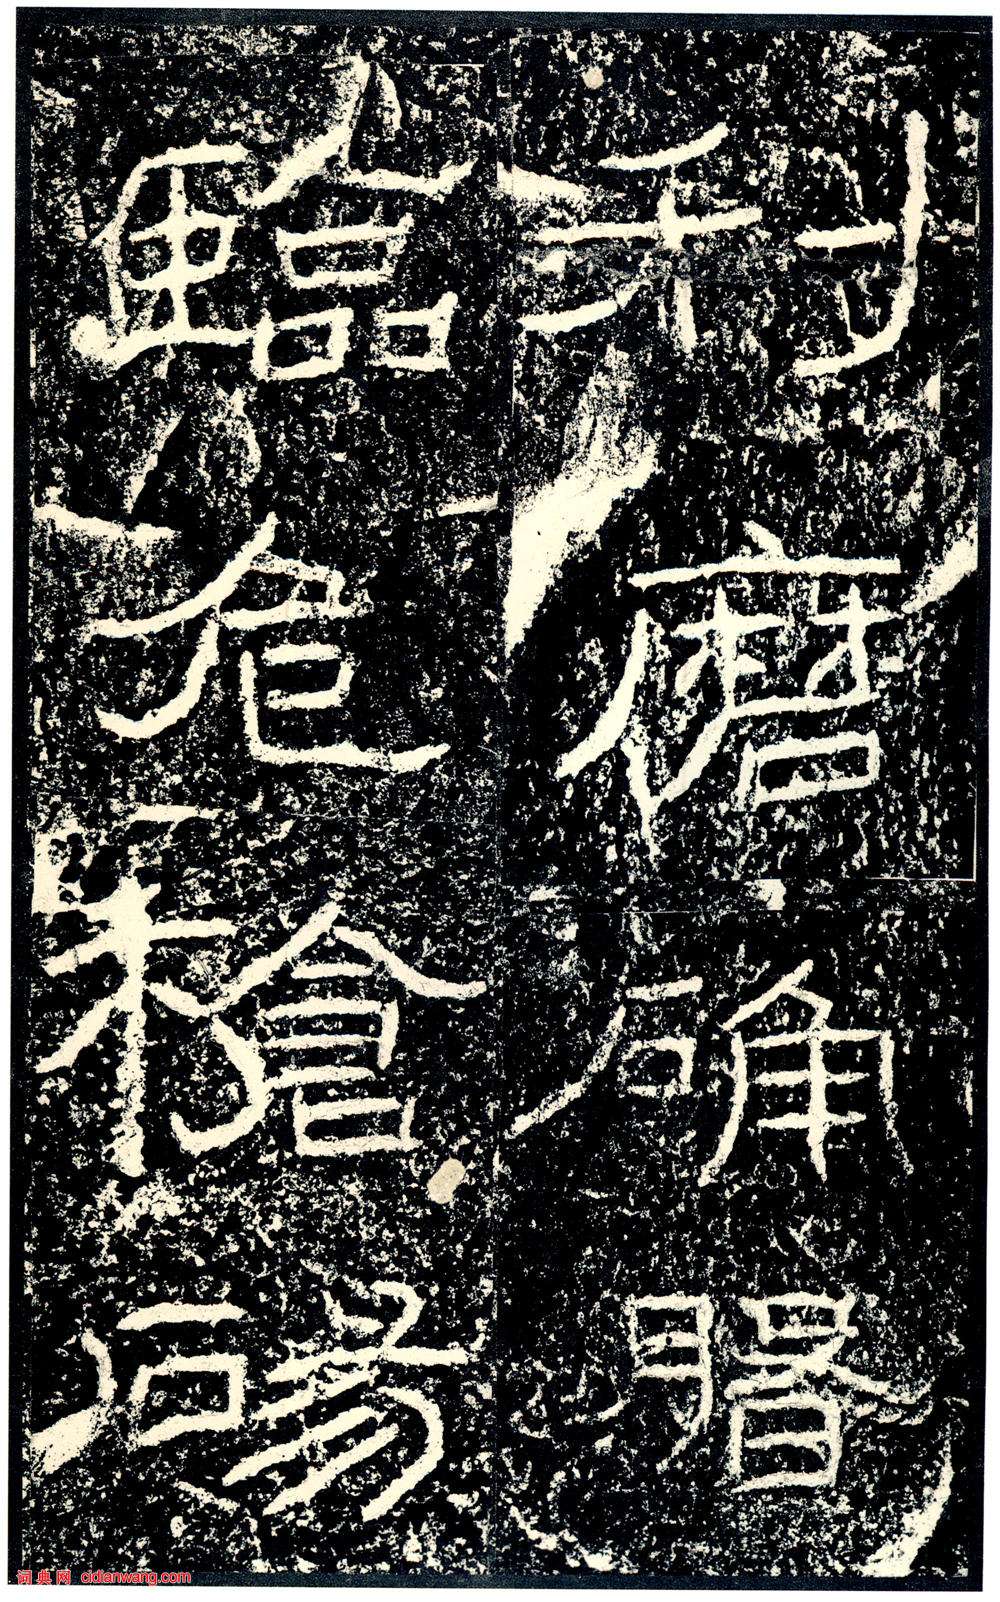 利磨确磐
臨危槍碭
词典网 cidianwang.com